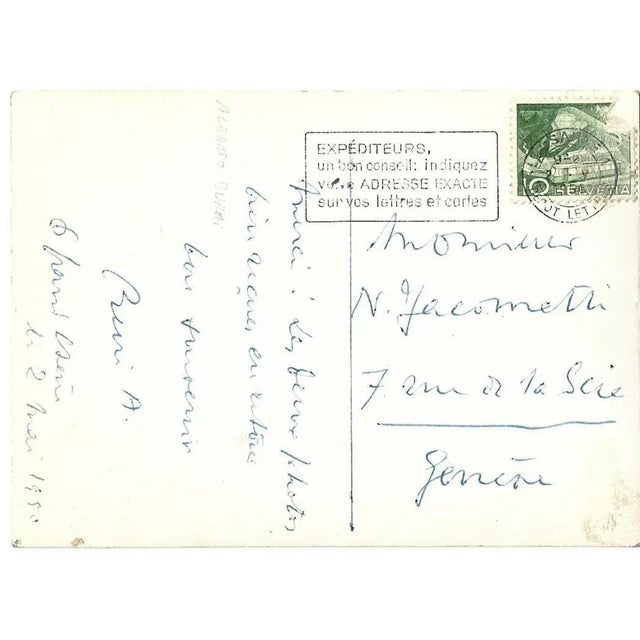 EXPÉDITEURS,
un bon conseil: indiquez
votre ADRESSE EXACTE
sur vos lettres et cartes
HELVETIA
Monsieur
N. Jacometti
7. rue de la Scie
Genève
Merci! Les deux photos
bien reçues en retour
bon souvenir
A.
le 2 mai 1950